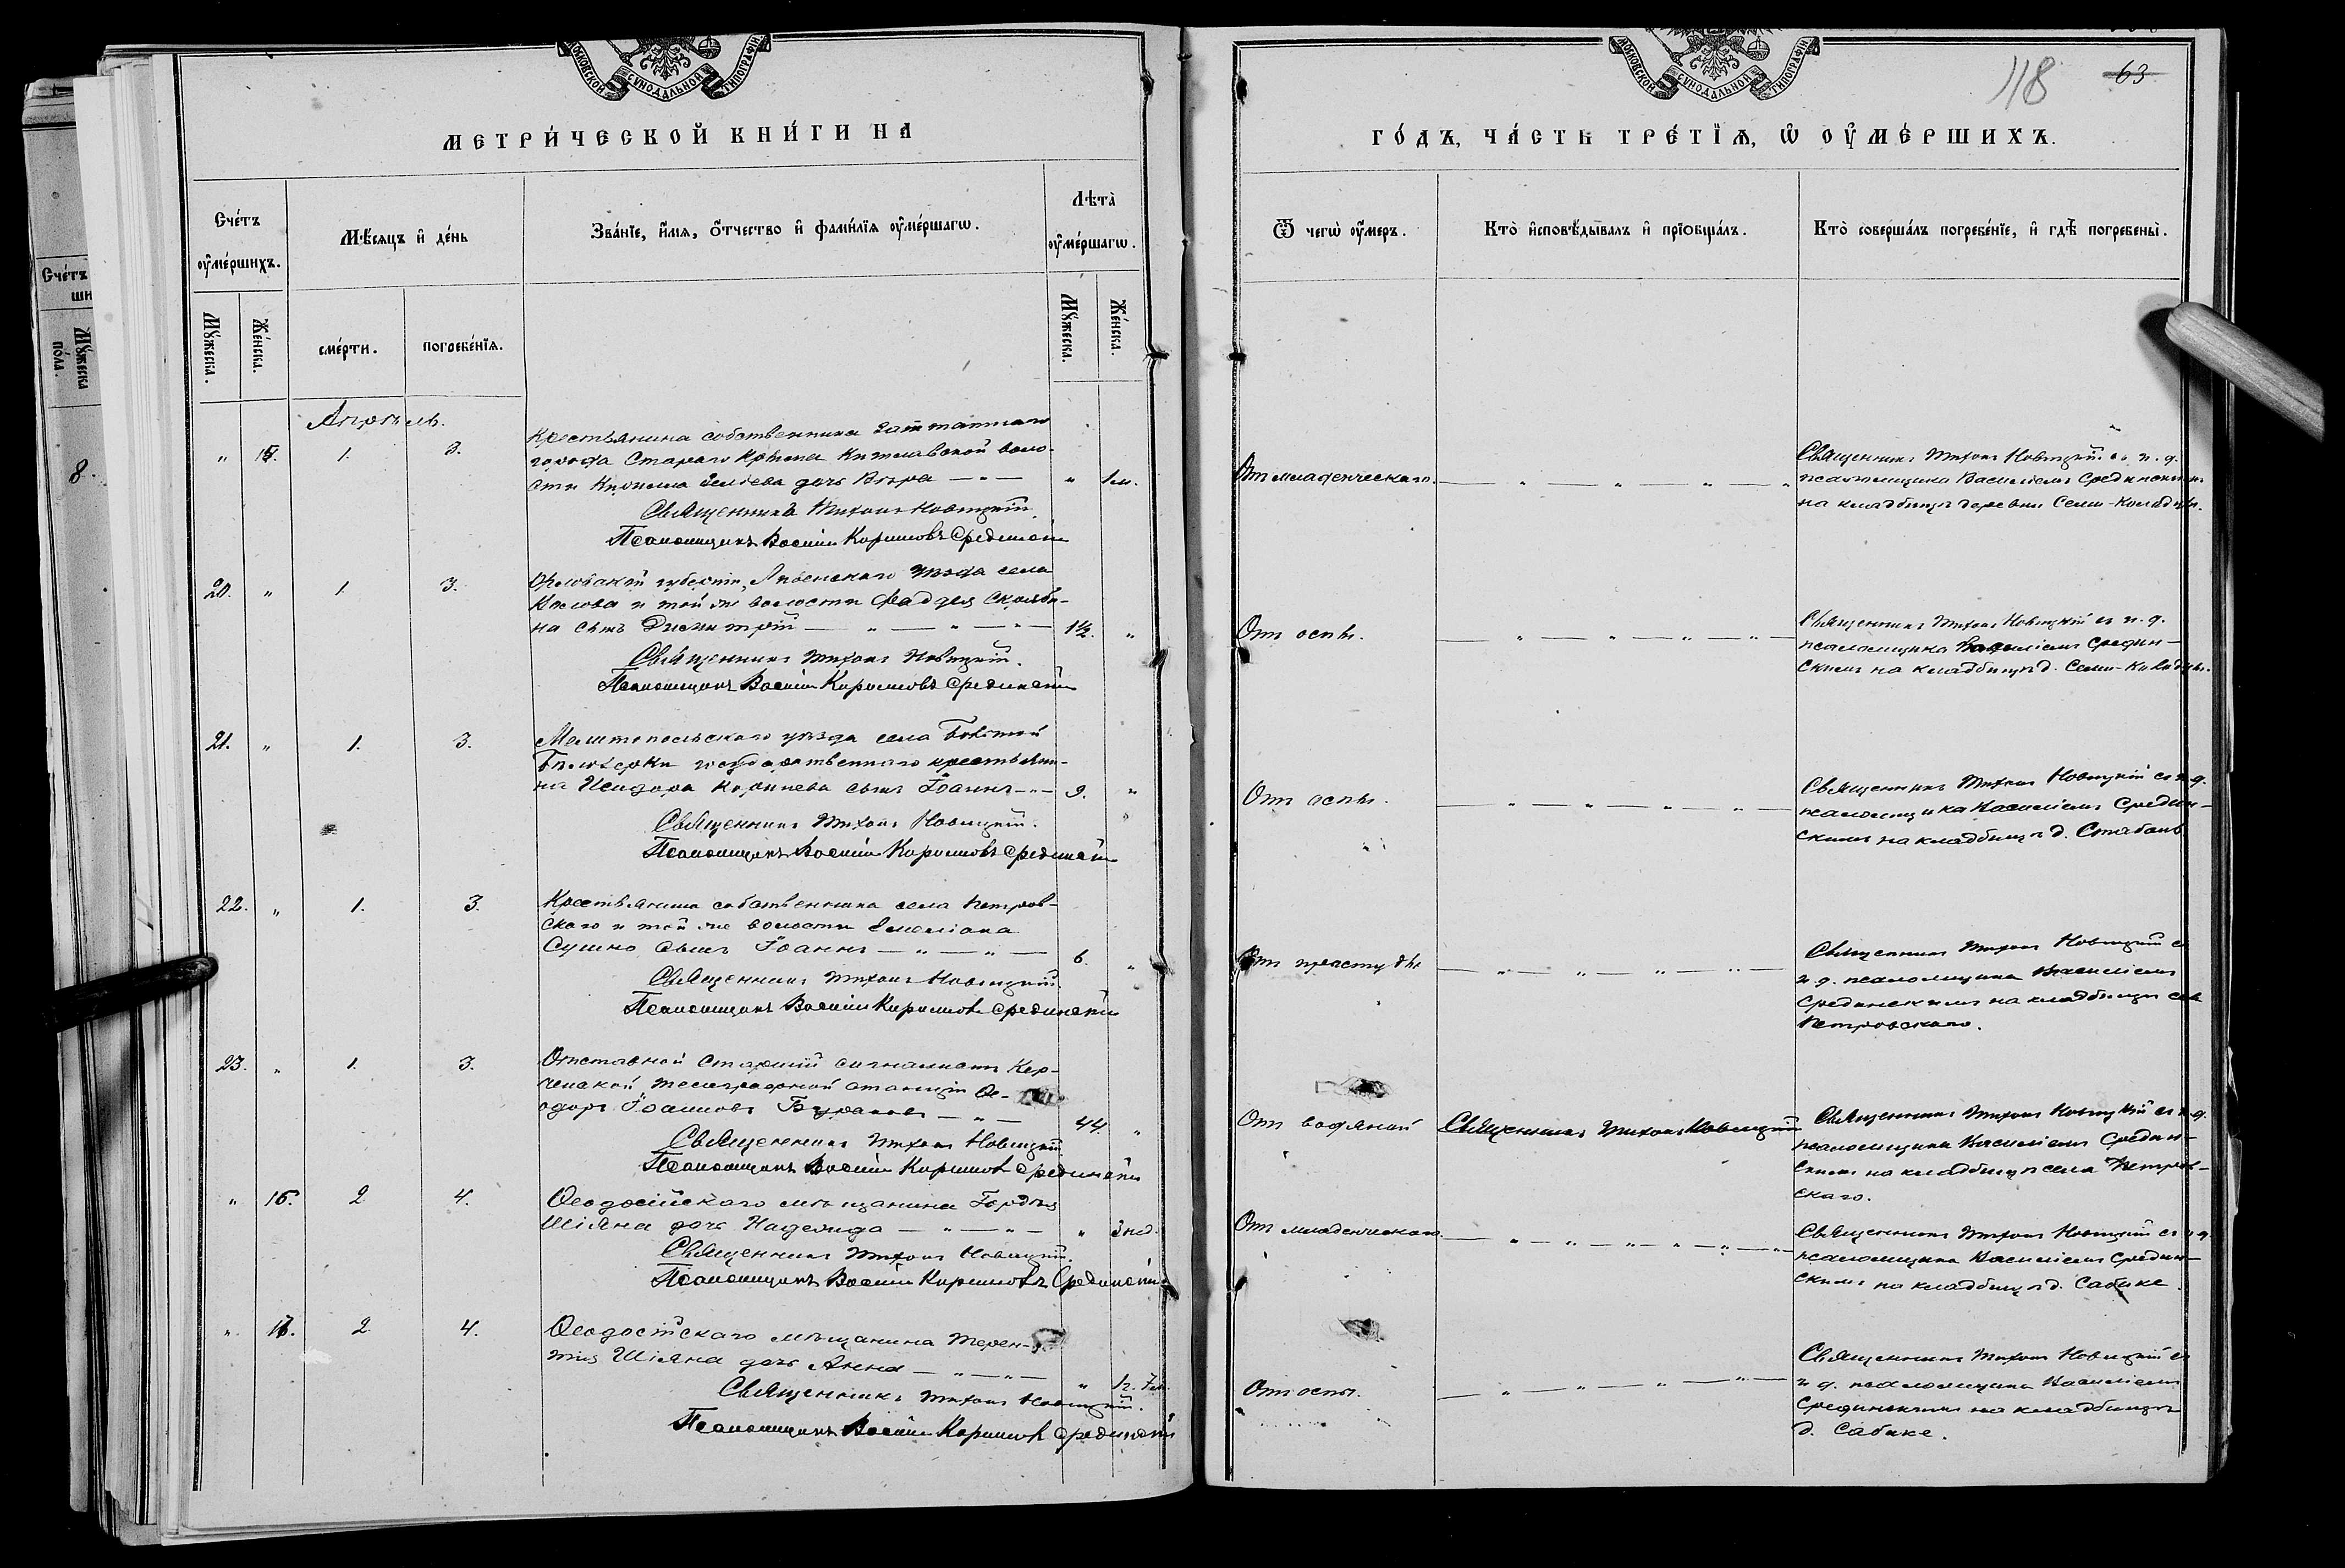 МОСКОВСКОЙ СѴНОДАЛЬНОЙ ТИПОГРАФІИ
МЕТРИ́ЧЕСКОЙ КНИ́ГИ НА
Счéтъ оумéршихъ.
Мѣ́сяцъ и дéнь
Звáнїе, и́мя, óтчество и фами́лїя оумéршагѡ.
Лѣ́тà оумéршагѡ.
Мꙋ́жеска. Жéнска.
смéрти. погребéнїя.
Мꙋ́жеска. Жéнска.
Апрѣль.
„ 1. 3. Крестьянина собственника заштатнаго
города Стараго Крыма воло-
сти Кирилла дочь Вѣра — „ — „ 1 м.
Священникъ Тихонъ Новицкій.
Псаломщикъ Василій Кирилловъ Срединскій
20. „ 1. 3. Орловской губерніи, Ливенскаго уѣзда села
и той же волости Фаддея
на сынъ Димитрій — „ — „ — „ — 1½. „
Священникъ Тихонъ Новицкій.
Псаломщикъ Василій Кирилловъ Срединскій
21. „ 1. 3. Мелитопольскаго уѣзда села Большой
Бѣлозерки государственнаго крестьяни-
на Исидора сынъ Іоаннъ — „ — 9. „
Священникъ Тихонъ Новицкій.
Псаломщикъ Василій Кирилловъ Срединскій
22. „ 1. 3. Крестьянина собственника села Петров-
скаго и той же волости Емеліана
Сушко сынъ Іоаннъ — „ — „ — 6. „
Священникъ Тихонъ Новицкій.
Псаломщикъ Василій Кирилловъ Срединскій
23. „ 1. 3. Отставной старшій сигналистъ Кер-
ченской телеграфной станціи Ѳе-
одоръ Іоанновъ — „ — 44. „
Священникъ Тихонъ Новицкій.
Псаломщикъ Василій Кирилловъ Срединскій
„ 16. 2 4. Ѳеодосійскаго мѣщанина Гордѣя
Шіяна дочь Надежда — „ — „ — „ 3 нед.
Священникъ Тихонъ Новицкій.
Псаломщикъ Василій Кирилловъ Срединскій
„ 2. 4. Ѳеодосійскаго мѣщанина Терен-
тія Шіяна дочь Анна — „ — „ — „ 1 г. 7 м.
Священникъ Тихонъ Новицкій.
Псаломщикъ Василій Кирилловъ Срединскій
Счéтъ
Мꙋ́жеска пóла.
8.
МОСКОВСКОЙ СѴНОДАЛЬНОЙ ТИПОГРАФІИ
118 63
ГÓДЪ, ЧÁСТЬ ТРÉТЇѦ, Ѡ ОУМÉРШИХЪ.
Ѿ чегѡ̀ оу́меръ.
Ктò исповѣ́дывалъ и прїобщáлъ.
Ктò совершáлъ погребéнїе, и гдѣ̀ погребены̀.
Отъ младенческаго. — „ — „ — „ — „ Священникъ Тихонъ Новицкій съ и. д.
псаломщика Василіемъ Срединскимъ
на кладбищѣ деревни Сеит-
Отъ оспы. — „ — „ — „ — „ — Священникъ Тихонъ Новицкій съ и. д.
псаломщика Василіемъ Средин-
скимъ на кладбищѣ д. Сеит-
Отъ оспы. — „ — „ — „ — „ — Священникъ Тихонъ Новицкій съ и. д.
псаломщика Василіемъ Средин-
скимъ на кладбищѣ д.
Отъ простуды — „ — „ — „ — „ — Священникъ Тихонъ Новицкій съ
и. д. псаломщика Василіемъ
Срединскимъ на кладбищѣ села
Петровскаго.
Отъ водяной Священникъ Тихонъ Новицкій Священникъ Тихонъ Новицкій съ и. д.
псаломщика Василіемъ Средин-
скимъ на кладбищѣ села Петров-
скаго.
Отъ младенческаго. — „ — „ — „ — „ — „ — „ Священникъ Тихонъ Новицкій съ и. д.
псаломщика Василіемъ Средин-
скимъ на кладбищѣ д. Сабаке.
Отъ оспы. — „ — „ — „ — „ — Священникъ Тихонъ Новицкій съ
и. д. псаломщика Василіемъ
Срединскимъ на кладбищѣ
д. Сабаке.